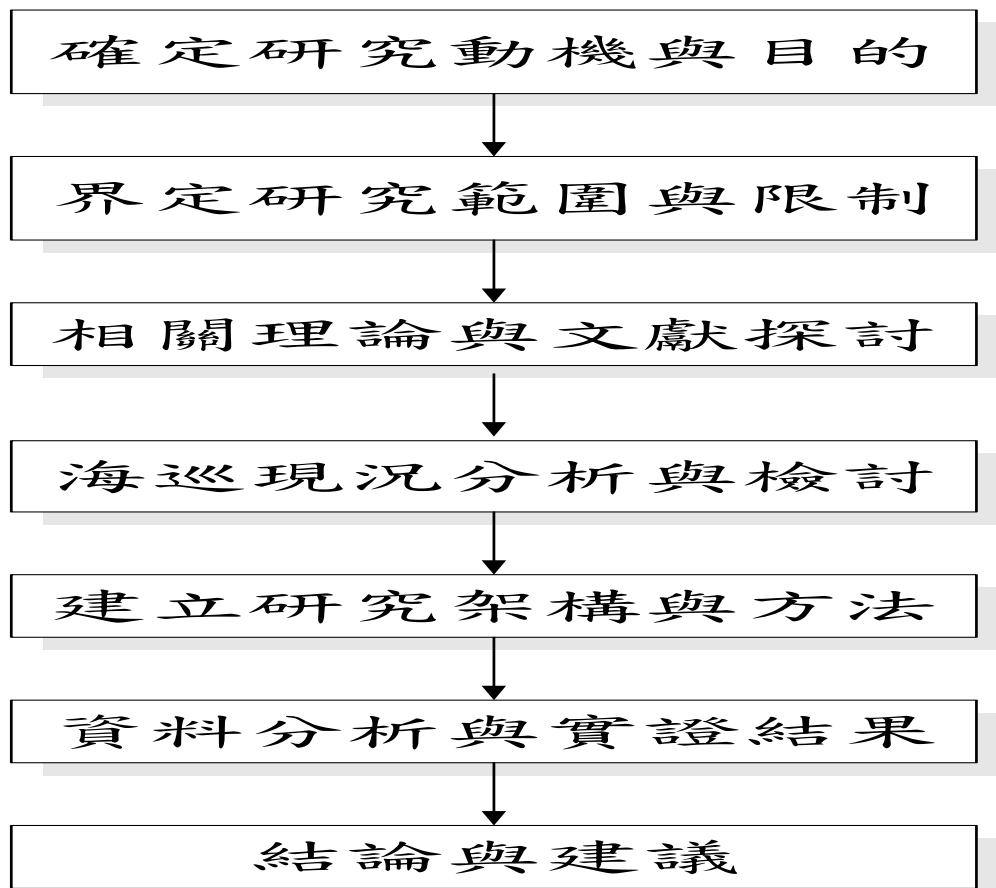 確定研究動機與目的
界定研究範圍與限制
相關理論與文獻探討
海巡現況分析與檢討
建立研究架構與方法
資料分析與實證結果
結論與建議